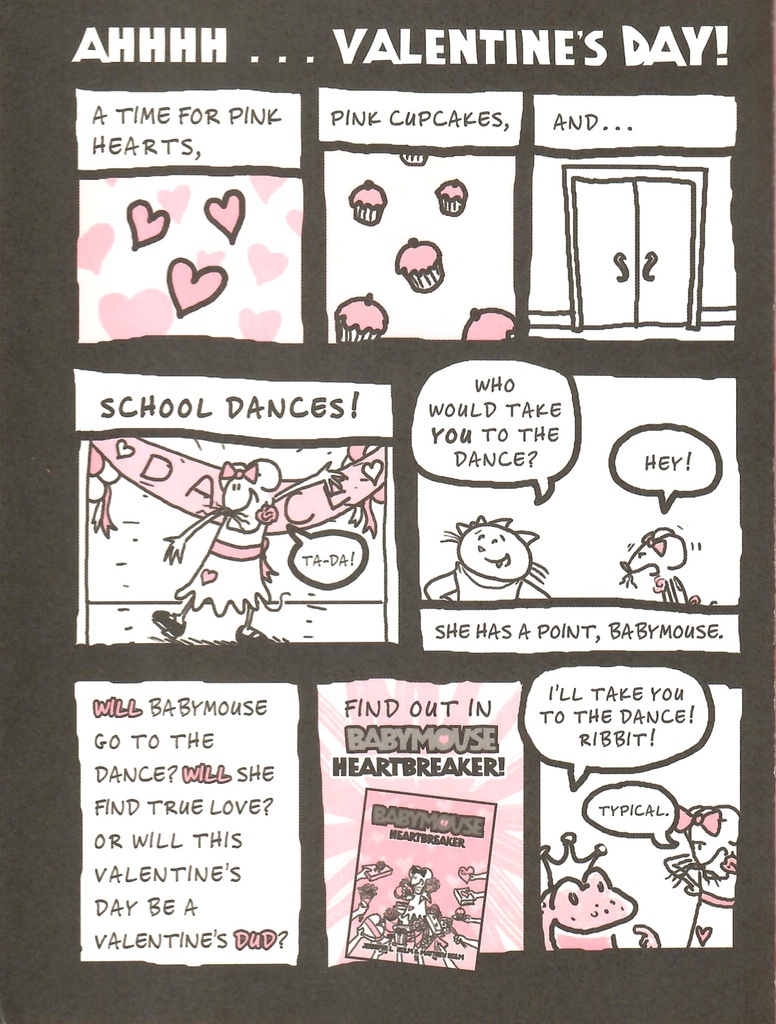 AHHHH ... VALENTINE'S DAY!
A TIME FOR PINK
HEARTS,
PINK CUPCAKES,
AND...
SCHOOL DANCES!
DANCE
TA-DA!
WHO
WOULD TAKE
YOU TO THE
DANCE?
HEY!
SHE HAS A POINT, BABYMOUSE.
WILL BABYMOUSE
GO TO THE
DANCE? WILL SHE
FIND TRUE LOVE?
OR WILL THIS
VALENTINE'S
DAY BE A
VALENTINE'S DUD?
FIND OUT IN
BABYMOUSE
HEARTBREAKER!
BABYMOUSE
HEARTBREAKER
JENNIFER L. HOLM & MATTHEW HOLM
I'LL TAKE YOU
TO THE DANCE!
RIBBIT!
TYPICAL.